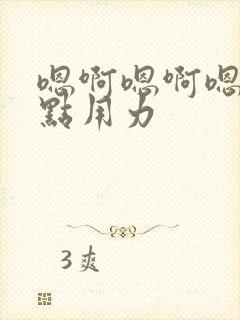 嗯啊嗯啊嗯
點用力
3爽